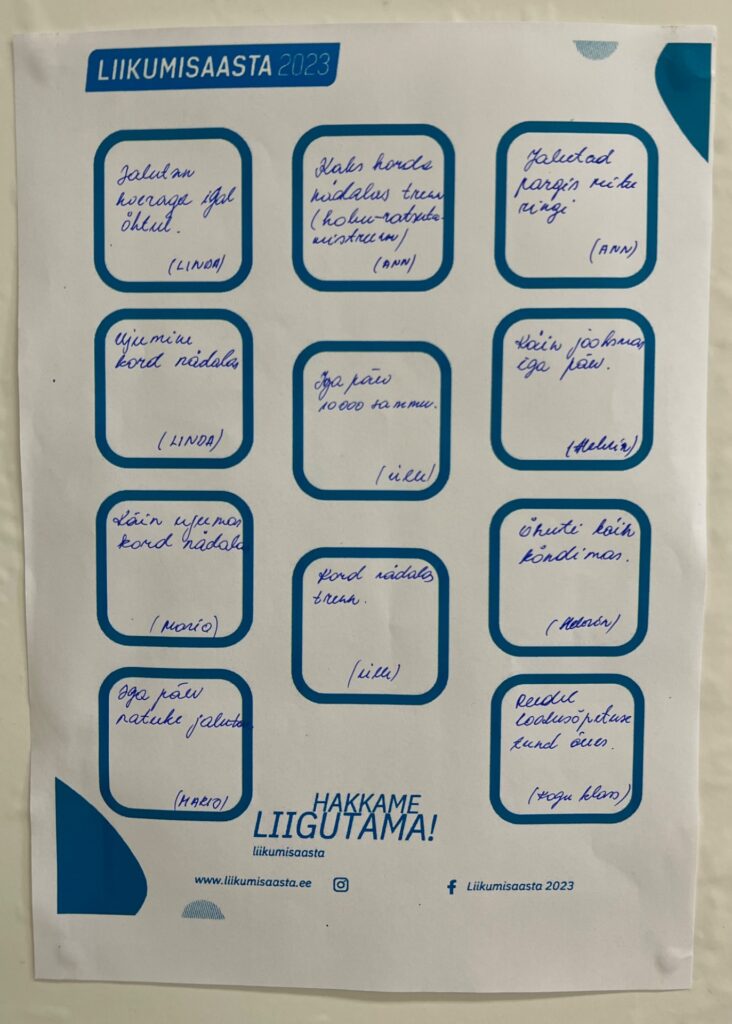 LIIKUMISAASTA 2023
Jalutan
koeraga igal
õhtul.
(LINDA)
Kaks korda
nädalas trenn
(hobu-ratsuta-
mistrenn)
(ANN)
Jalutad
pargis mitu
ringi
(ANN)
Ujumine
kord nädalas
(LINDA)
Iga päev
10000 sammu.
(Ülle)
Käin jooksmas
iga päev.
(Helerin)
Käin ujumas
kord nädalas
(MARIO)
Kord nädalas
trenn.
(Ülle)
Õhuti käin
kõndimas.
(Helerin)
Iga päev
natuke jalutan
(MARIO)
Reedel
loodusõpetuse
tund õues.
(Kogu klass)
HAKKAME
LIIGUTAMA!
liikumisaasta
www.liikumisaasta.ee
Liikumisaasta 2023